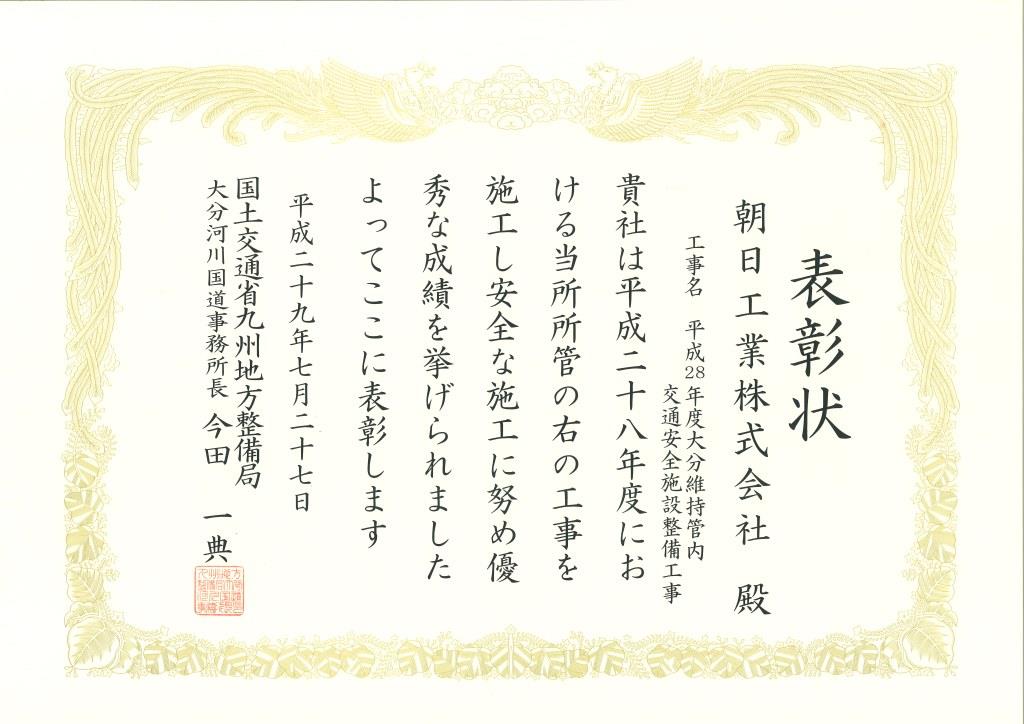 表彰状
朝日工業株式会社 殿
工事名 平成28年度大分維持管内
交通安全施設整備工事
貴社は平成二十八年度にお
ける当所所管の右の工事を
施工し安全な施工に努め優
秀な成績を挙げられました
よってここに表彰します
平成二十九年七月二十七日
国土交通省九州地方整備局
大分河川国道事務所長 今田 一典